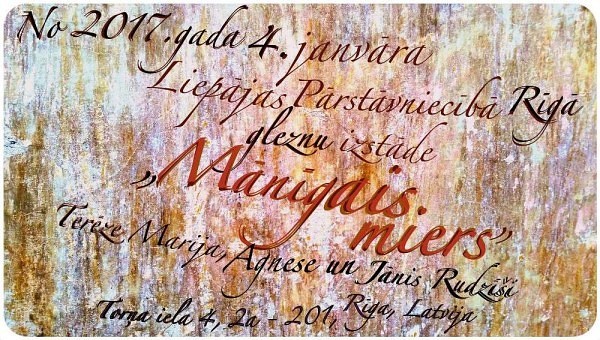 No 2017.gada 4. janvāra
Liepājas Pārstāvniecībā Rīgā
gleznu izstāde
„Mānīgais.
miers”
Terēze Marija, Agnese un Jānis Rudzīši
Torņa iela 4, 2a - 201, Rīga, Latvija